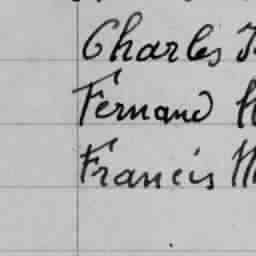 Charles
Fernand
Francis